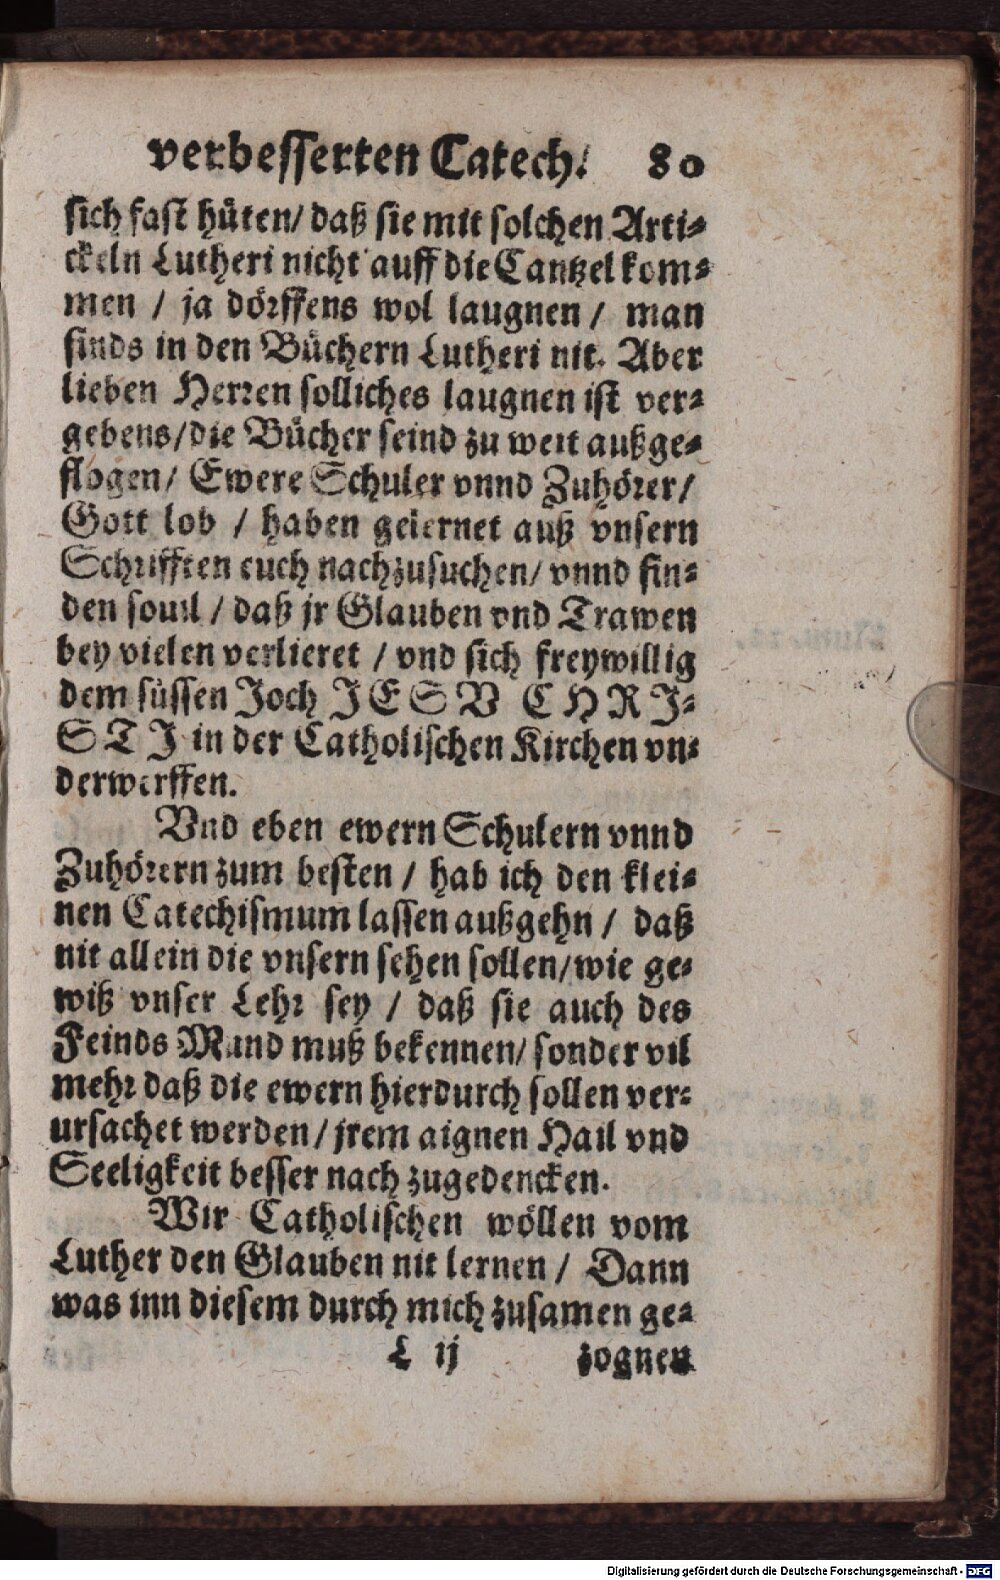 verbesserten Catech. 80
sich fast hüten/ daß sie mit solchen Arti-
ckeln Lutheri nicht auff die Cantzel kom-
men / ja dörffens wol laugnen / man
finds in den Büchern Lutheri nit. Aber
lieben Herren solliches laugnen ist ver-
gebens/die Bücher seind zu weit außge-
flogen/ Ewere Schuler vnnd Zuhörer/
Gott lob / haben gelernet auß vnsern
Schrifften euch nachzusuchen/ vnnd fin-
den souil / daß jr Glauben vnd Trawen
bey vielen verlieret / vnd sich freywillig
dem süssen Joch JESV CHRI-
STI in der Catholischen Kirchen vn-
derwerffen.
Vnd eben ewern Schulern vnnd
Zuhörern zum besten / hab ich den klei-
nen Catechismum lassen außgehn / daß
nit allein die vnsern sehen sollen/wie ge-
wiß vnser Lehr sey / daß sie auch des
Feinds Mund muß bekennen/ sonder vil
mehr daß die ewern hierdurch sollen ver-
ursachet werden/ jrem aignen Hail vnd
Seeligkeit besser nach zugedencken.
Wir Catholischen wöllen vom
Luther den Glauben nit lernen / Dann
was inn diesem durch mich zusamen ge-
L ij zognen
Digitalisierung gefördert durch die Deutsche Forschungsgemeinschaft - DFG